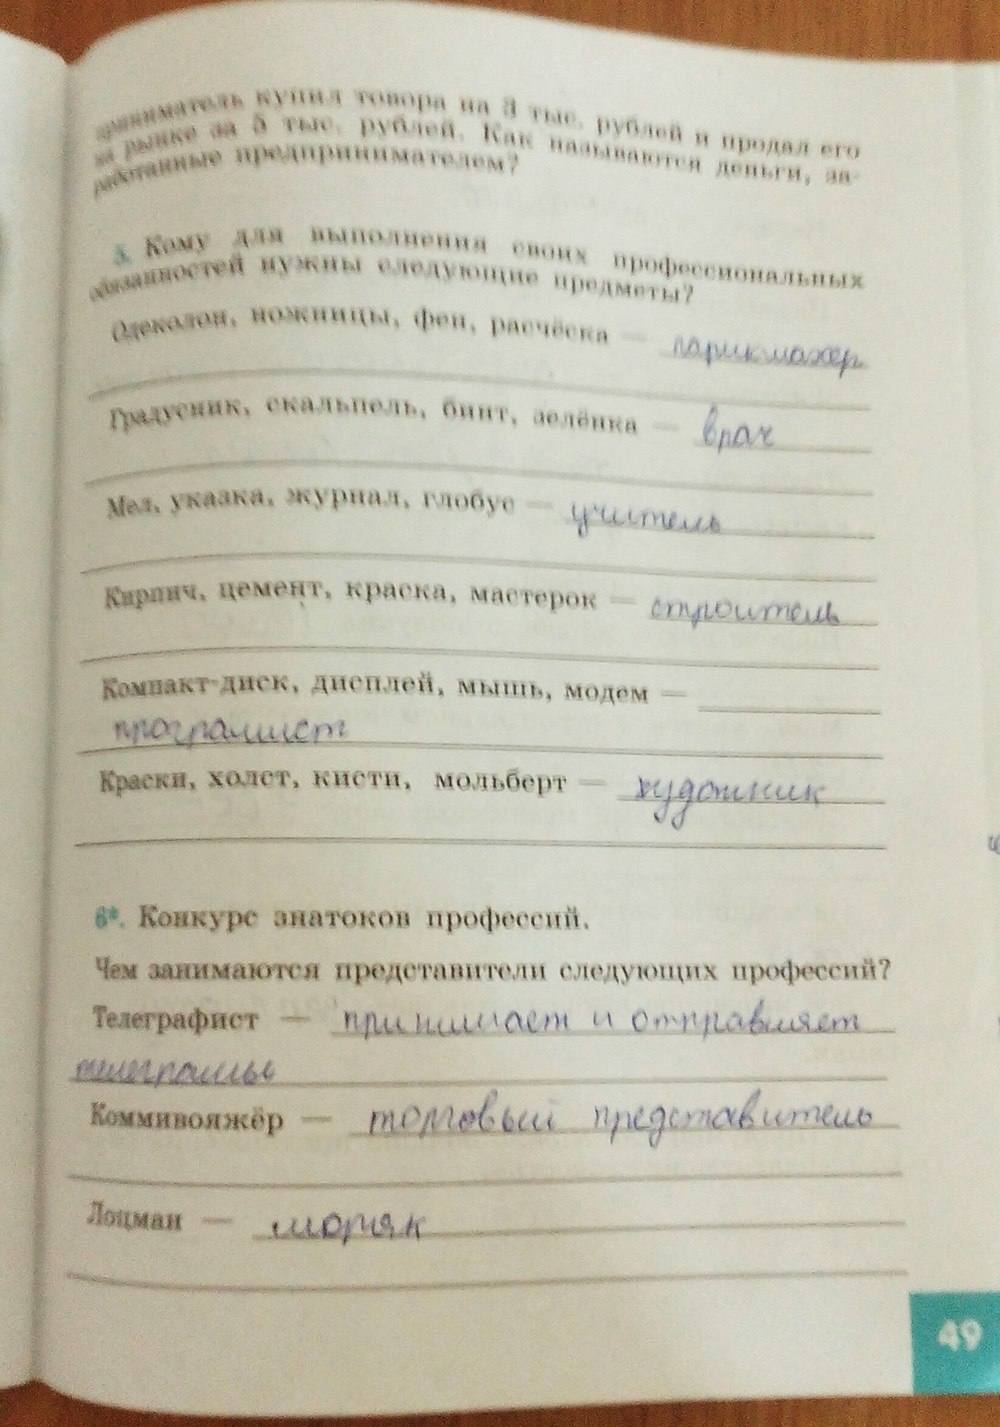 приниматель купил товора на 3 тыс. рублей и продал его
на рынке за 5 тыс. рублей. Как называются деньги, за-
работанные предпринимателем?
5. Кому для выполнения своих профессиональных
обязанностей нужны следующие предметы?
Одеколон, ножницы, фен, расчёска — парикмахер
Градусник, скальпель, бинт, зелёнка — врач
Мел, указка, журнал, глобус — учитель
Кирпич, цемент, краска, мастерок — строитель
Компакт-диск, дисплей, мышь, модем —
програмист
Краски, холст, кисти, мольберт — художник
6*. Конкурс знатоков профессий.
Чем занимаются представители следующих профессий?
Телеграфист — принимает и отправляет
телеграммы
Коммивояжёр — торговый представитель
Лоцман — моряк
49